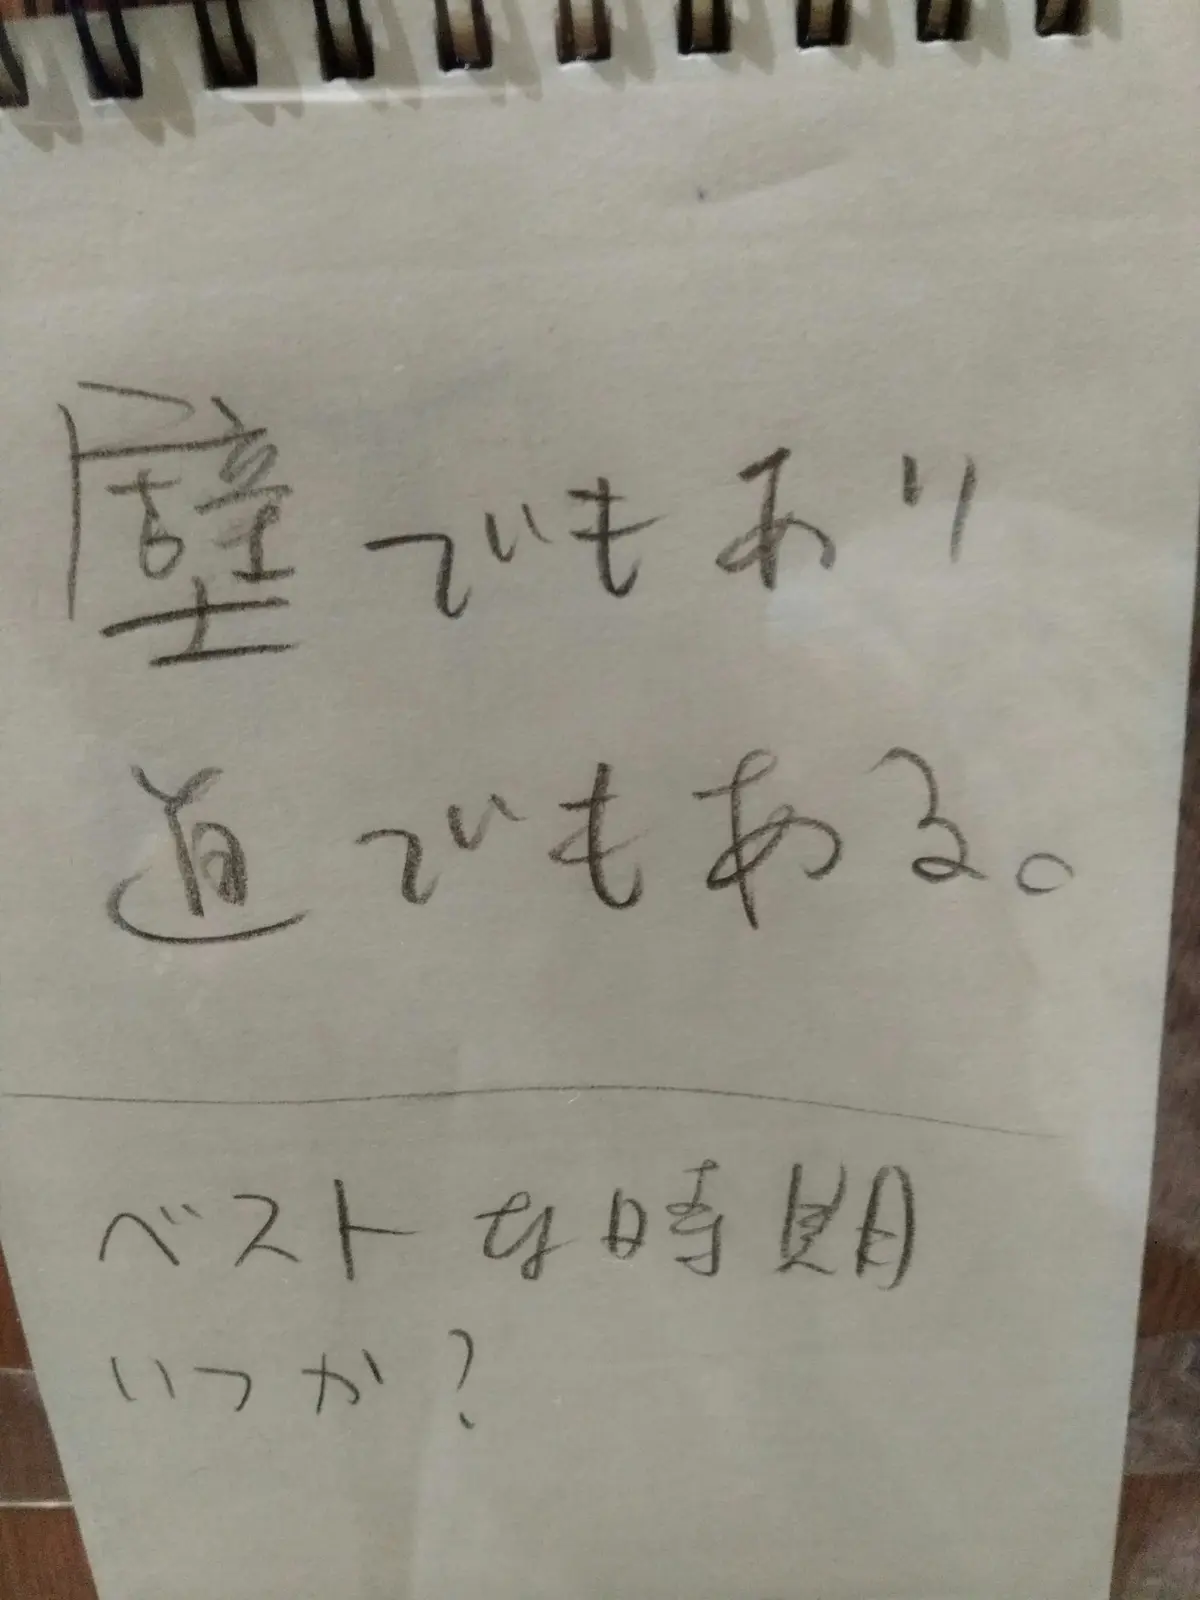 壁でもあり
道でもある。
ベストな時期
いつか?